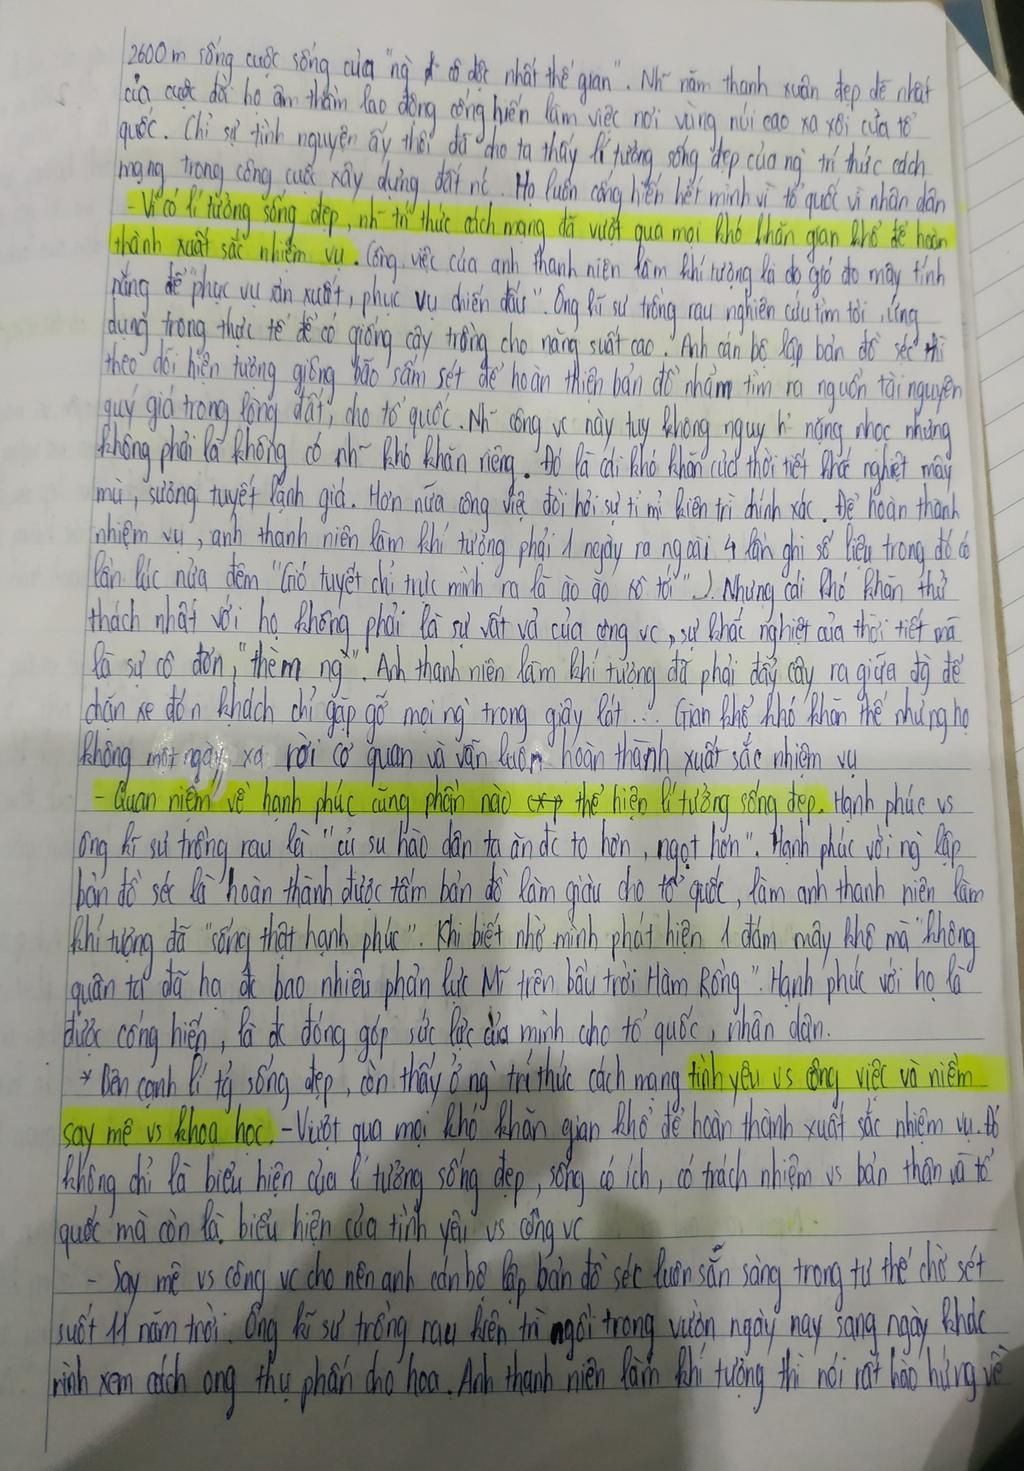 2600m sống cuộc sống của "ng` cô độc nhất thế gian". Nh~ năm thanh xuân đẹp đẽ nhất
của cuộc đời họ âm thầm lao động cống hiến làm việc nơi vùng núi cao xa xôi của tổ
quốc. Chỉ sự tình nguyện ấy thôi đã cho ta thấy lí tưởng sống đẹp của ng` trí thức cách
mạng trong công cuộc xây dựng đất nc. Họ luôn cống hiến hết mình vì tổ quốc vì nhân dân
- Vì có lí tưởng sống đẹp, nh~ trí thức cách mạng đã vượt qua mọi khó khăn gian khổ để hoàn
thành xuất sắc nhiệm vụ. Công việc của anh thanh niên làm khí tượng là đo gió đo mây tính
nắng để "phục vụ sản xuất, phục vụ chiến đấu". Ông kĩ sư trồng rau nghiên cứu tìm tòi, ứng
dụng trong thực tế để có giống cây trồng cho năng suất cao. Anh cán bộ lập bản đồ sét thì
theo dõi hiện tượng giông bão sấm sét để hoàn thiện bản đồ nhằm tìm ra nguồn tài nguyên
quý giá trong lòng đất, cho tổ quốc. Nh~ công vc này tuy không nguy h~ nặng nhọc nhưng
không phải là không có nh~ khó khăn riêng. Đó là cái khó khăn của thời tiết khắc nghiệt mây
mù, sương tuyết lạnh giá. Hơn nữa công việc đòi hỏi sự tỉ mỉ kiên trì chính xác. Để hoàn thành
nhiệm vụ, anh thanh niên làm khí tượng phải 1 ngày ra ngoài 4 lần ghi số liệu trong đó có
lần lúc nửa đêm "Gió tuyết chỉ trực mình ra là ào ào xô tới". Nhưng cái khó khăn thử
thách nhất với họ không phải là sự vất vả của công vc, sự khắc nghiệt của thời tiết mà
là sự cô đơn, "thèm ng`". Anh thanh niên làm khí tượng đã phải đẩy cây ra giữa đg để
chặn xe đón khách chỉ gặp gỡ mọi ng` trong giây lát... Gian khổ khó khăn thế nhưng họ
không một ngày xa rời cơ quan và vẫn luôn hoàn thành xuất sắc nhiệm vụ
- Quan niệm về hạnh phúc cũng phần nào thể hiện lí tưởng sống đẹp. Hạnh phúc vs
ông kĩ sư trồng rau là "củ su hào dân ta ăn đc to hơn, ngọt hơn". Hạnh phúc với ng` lập
bản đồ sét là hoàn thành được tấm bản đồ làm giàu cho tổ quốc, làm anh thanh niên làm
khí tượng đã "sống thật hạnh phúc". Khi biết nhờ mình phát hiện 1 đám mây khô mà "không
quân ta đã hạ đc bao nhiêu phản lực Mĩ trên bầu trời Hàm Rồng". Hạnh phúc với họ là
được cống hiến, là đc đóng góp sức lực của mình cho tổ quốc, nhân dân.
* Bên cạnh lí tg sống đẹp, còn thấy ở ng` trí thức cách mạng tình yêu vs công việc và niềm
say mê vs khoa học. - Vượt qua mọi khó khăn gian khổ để hoàn thành xuất sắc nhiệm vụ. Đó
không chỉ là biểu hiện của lí tưởng sống đẹp, sống có ích, có trách nhiệm vs bản thân và tổ
quốc mà còn là biểu hiện của tình yêu vs công vc
- Say mê vs công vc cho nên anh cán bộ lập bản đồ sét luôn sẵn sàng trong tư thế chờ sét
suốt 11 năm trời. Ông kĩ sư trồng rau kiên trì ngồi trong vườn ngày này sang ngày khác
rình xem cách ong thụ phấn cho hoa. Anh thanh niên làm khí tượng thì nói rất hào hứng về